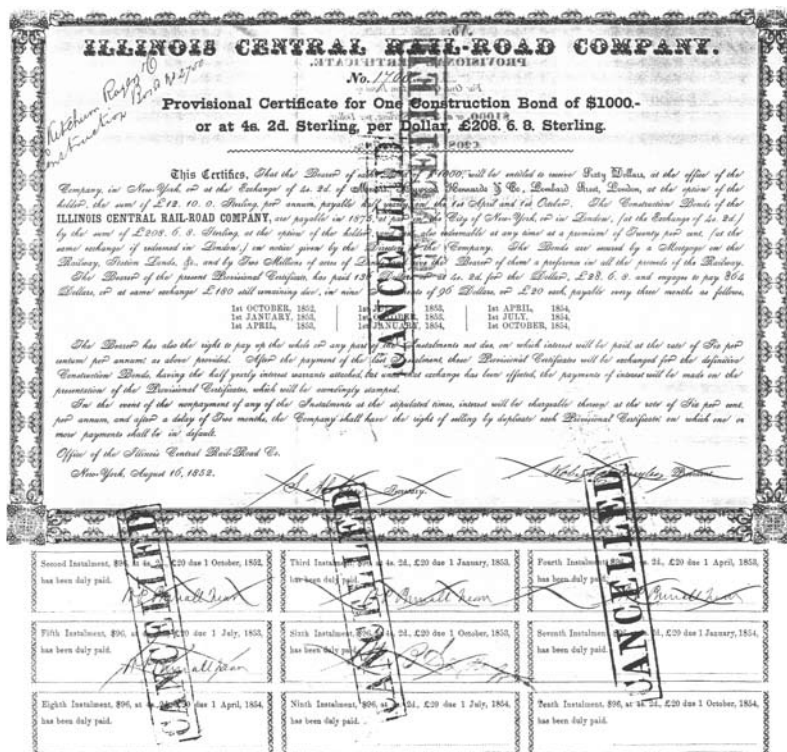 ILLINOIS CENTRAL RAIL-ROAD COMPANY.
No. 1700
Provisional Certificate for One Construction Bond of $1000.-
or at 4s. 2d. Sterling, per Dollar, £208. 6. 8. Sterling.
Ketchum Rogers &
Construction Bond No 2700
This Certifies, That the Bearer of will be entitled to receive Sixty Dollars, at the office of the
Company, in New-York, or at the Exchange of 4s. 2d. of & Co, Lombard Street, London, at the option of the
holder, the sum of £12. 10. 0. Sterling, per annum, payable half yearly on the 1st April and 1st October. The Construction Bonds of the
ILLINOIS CENTRAL RAIL-ROAD COMPANY, are payable in 1875, at City of New-York, or in London, (at the Exchange of 4s. 2d.)
by the sum of £208. 6. 8. Sterling, at the option of the holder also redeemable at any time at a premium of Twenty per cent. (at the
same exchange if redeemed in London,) on notice given by the Company. The Bonds are secured by a Mortgage on the
Railway, Station Lands, &c., and by Two Millions of acres of the Bearer of them a preference in all the proceeds of the Railway.
The Bearer of the present Provisional Certificate, has paid 136 at 4s. 2d. for the Dollar, £28. 6. 8. and engages to pay 864
Dollars, or at same exchange £180 still remaining due, in nine of 96 Dollars, or £20 each, payable every three months as follows,
1st OCTOBER, 1852, 1853, 1st APRIL, 1854,
1st JANUARY, 1853, 1st OCTOBER, 1853, 1st JULY, 1854,
1st APRIL, 1853, 1st JANUARY, 1854, 1st OCTOBER, 1854,
The Bearer has also the right to pay up the whole or any part of the Instalments not due, on which interest will be paid at the rate of Six per
centum per annum; as above provided. After the payment of the last Instalment, these Provisional Certificates will be exchanged for the definitive
Construction Bonds, having the half yearly interest warrants attached, but until that exchange has been effected, the payments of interest will be made on the
presentation of the Provisional Certificates, which will be accordingly stamped.
In the event of the nonpayment of any of the Instalments at the stipulated times, interest will be chargeable thereon at the rate of Six per cent.
per annum, and after a delay of Two months, the Company shall have the right of selling by duplicate each Provisional Certificate on which one or
more payments shall be in default.
Office of the Illinois Central Rail-Road Co.
New-York, August 16, 1852.
CANCELLED
CANCELLED
CANCELLED
CANCELLED
Second Instalment, $96, at 4s. 2d., £20 due 1 October, 1852,
has been duly paid.
Third Instalment, $96, at 4s. 2d., £20 due 1 January, 1853,
has been duly paid.
Fourth Instalment, $96, at 4s. 2d., £20 due 1 April, 1853,
has been duly paid.
Fifth Instalment, $96, at 4s. 2d., £20 due 1 July, 1853,
has been duly paid.
Sixth Instalment, $96, at 4s. 2d., £20 due 1 October, 1853,
has been duly paid.
Seventh Instalment, $96, at 4s. 2d., £20 due 1 January, 1854,
has been duly paid.
Eighth Instalment, $96, at 4s. 2d., £20 due 1 April, 1854,
has been duly paid.
Ninth Instalment, $96, at 4s. 2d., £20 due 1 July, 1854,
has been duly paid.
Tenth Instalment, $96, at 4s. 2d., £20 due 1 October, 1854,
has been duly paid.